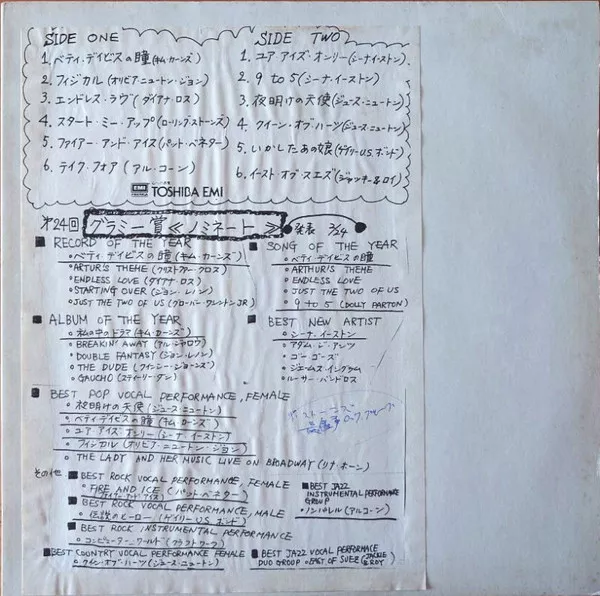 SIDE ONE
1. ベティ・デイビスの瞳(キム・カーンズ)
2. フィジカル(オリビア・ニュートン・ジョン)
3. エンドレス・ラヴ(ダイアナ・ロス)
4. スタート・ミー・アップ(ローリング・ストーンズ)
5. ファイアー・アンド・アイス(パット・ベネター)
6. テイク・フォア(アル・コーン)
SIDE TWO
1. ユア・アイズ・オンリー(シーナ・イーストン)
2. 9 to 5(シーナ・イーストン)
3. 夜明けの天使(ジュース・ニュートン)
4. クイーン・オブ・ハーツ(ジュース・ニュートン)
5. いかしたあの娘(ゲイリーU.S.ボンド)
6. イースト・オブ・スエズ(ジャッキー&ロイ)
EMI TOSHIDA EMI
第24回 グラミー賞≪ノミネート≫ 発表 2/24
■ RECORD OF THE YEAR
○ ベティ・デイビスの瞳(キム・カーンズ)
○ ARTUR'S THEME(クリストファー・クロス)
○ ENDLESS LOVE(ダイアナ・ロス)
○ STARTING OVER(ジョン・レノン)
○ JUST THE TWO OF US(グローバー・ワシントンJR)
■ SONG OF THE YEAR
○ ベティ・デイビスの瞳
○ ARTHUR'S THEME
○ ENDLESS LOVE
○ JUST THE TWO OF US
○ 9 to 5 (DOLLY PARTON)
■ ALBUM OF THE YEAR
○ 私の中のドラマ(キム・カーンズ)
○ BREAKIN' AWAY(アル・ジャロウ)
○ DOUBLE FANTASY(ジョン・レノン)
○ THE DUDE(クインシー・ジョーンズ)
○ GAUCHO(スティーリー・ダン)
■ BEST NEW ARTIST
○ シーナ・イーストン
○ アダム・&・アンツ
○ ゴーゴーズ
○ ジェームス・イングラム
○ ルーサー・バンドロス
■ BEST POP VOCAL PERFORMANCE, FEMALE
○ 夜明けの天使(ジュース・ニュートン)
○ ベティ・デイビスの瞳(キム・カーンズ)
○ ユア・アイズ・オンリー(シーナ・イーストン)
○ フィジカル(オリビア・ニュートン・ジョン)
○ THE LADY AND HER MUSIC LIVE ON BROADWAY(リナ・ホーン)
その他
■ BEST ROCK VOCAL PERFORMANCE, FEMALE
○ FIRE AND ICE(パット・ベネター)
■ BEST ROCK VOCAL PERFORMANCE, MALE
○ 伝説のヒーロー(ゲイリーU.S.ボンド)
■ BEST ROCK INSTRUMENTAL PERFORMANCE
○ コンピューター・ワールド(クラフトワーク)
■ BEST COUNTRY VOCAL PERFORMANCE FEMALE
○ クイン・オブ・ハーツ(ジュース・ニュートン)
■ BEST JAZZ
INSTRUMENTAL PERFORMANCE
GROUP
○ ノンパレル(アルコーン)
■ BEST JAZZ VOCAL PERFORMACE
DUO GROUP ○ EAST OF SUEZ(JACKIE & ROY)